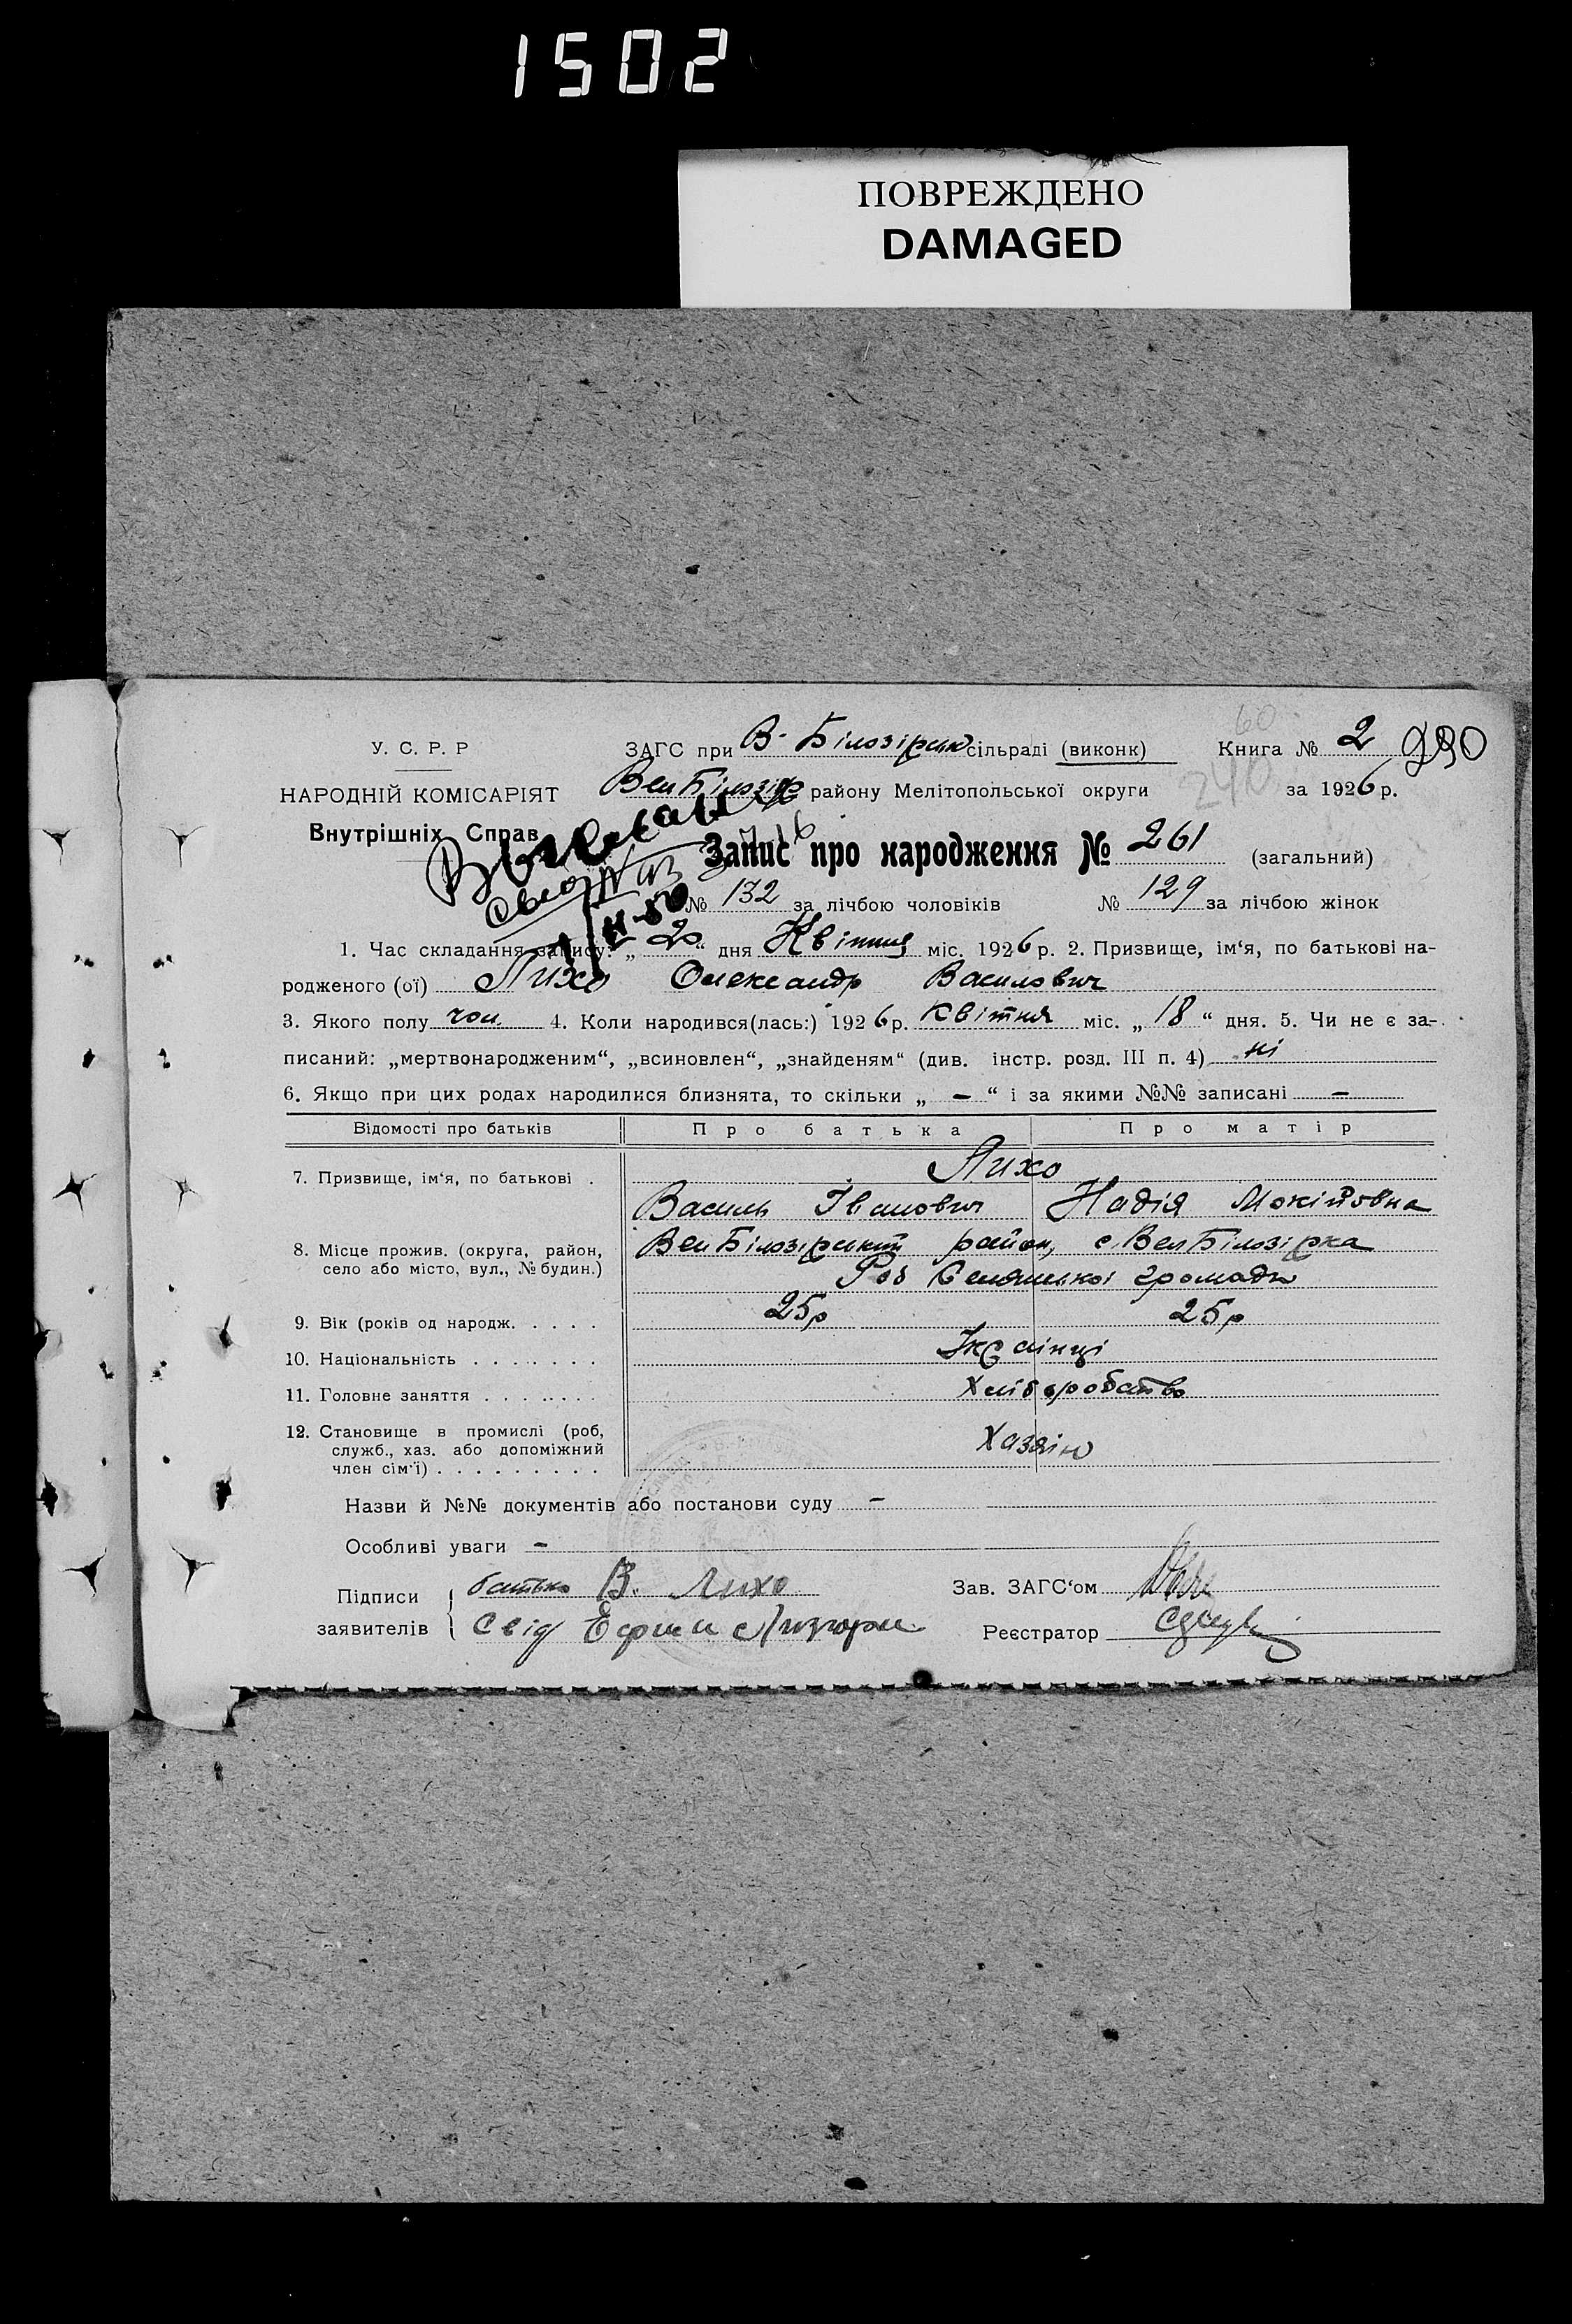 1502
ПОВРЕЖДЕНО
DAMAGED
60
У. С. Р. Р ЗАГС при В-Білозірськ сільраді (виконк) Книга № 2 290
НАРОДНІЙ КОМІСАРІЯТ Вел Білозір району Мелітопольської округи 240 за 1926 р.
Внутрішніх Справ
Запис про народження № 261 (загальний)
№ 132 за лічбою чоловіків № 129 за лічбою жінок
1. Час складання запису: „ 20 “ дня Квітня міс. 1926 р. 2. Призвище, ім‘я, по батькові на-
родженого (ої) Лихо Олександр Василович
3. Якого полу чол. 4. Коли народився(лась:) 1926 р. Квітня міс. „ 18 “ дня. 5. Чи не є за-
писаний: „мертвонародженим“, „всиновлен“, „знайденям“ (див. інстр. розд. III п. 4) ні
6. Якщо при цих родах народилися близнята, то скільки „ – “ і за якими №№ записані –
Відомості про батьків Про батька Про матір
7. Призвище, ім‘я, по батькові . Лихо
Василь Іванович Надія Мокіївна
8. Місце прожив. (округа, район, село або місто, вул., № будин.) Вел Білозірський район, с. Вел Білозірка
Селянської громади
9. Вік (років од народж. . . . . 25р 25р
10. Національність . . . . . . . Українці
11. Головне заняття . . . . . . . Хліборобство
12. Становище в промислі (роб, служб., хаз. або допоміжний член сім‘ї) . . . . . . . . . Хазяїн
Назви й №№ документів або постанови суду –
Особливі уваги –
Підписи заявителів батько В. Лихо Зав. ЗАГС‘ом
Свід Реєстратор